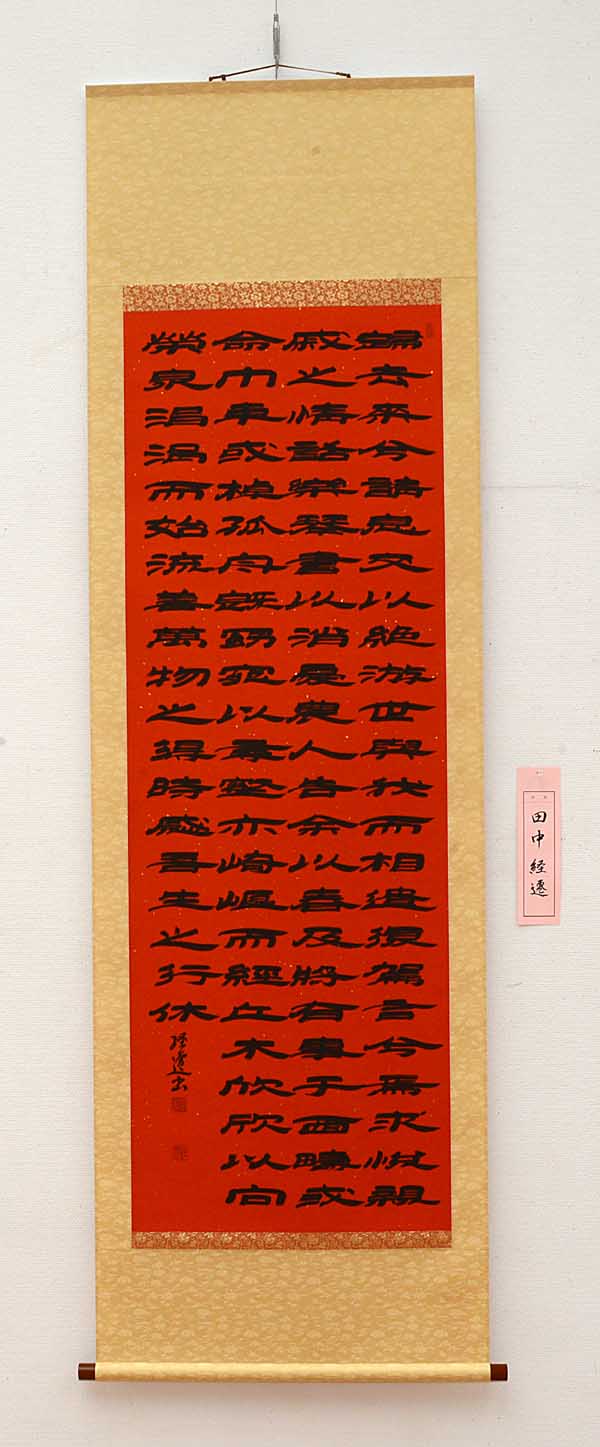 歸去來兮請息交以絶游世與我而相遺復駕言兮焉求悦親
戚之情話樂琴書以消憂農人告余以春及將有事于西疇或
命巾車或棹孤舟既窈窕以尋壑亦崎嶇而經丘木欣欣以向
榮泉涓涓而始流善萬物之得時感吾生之行休
経遷書
田中 経遷